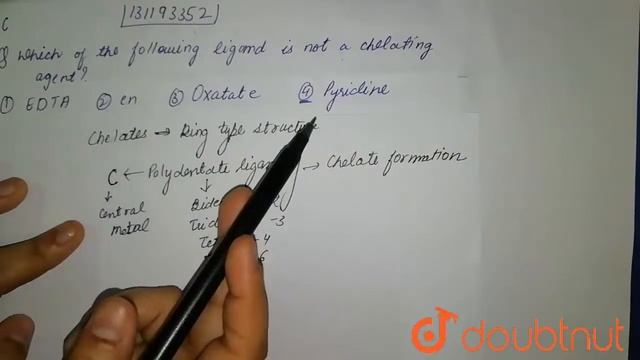 C
131193352
Q which of the following ligand is not a chelating
agent?
① EDTA ② en ③ Oxatate ④ Pyridine
Chelates → Ring type structure
C ← Polydentate ligand → Chelate formation
↓ ↓
Central
metal
-3
4
6
doubtnut